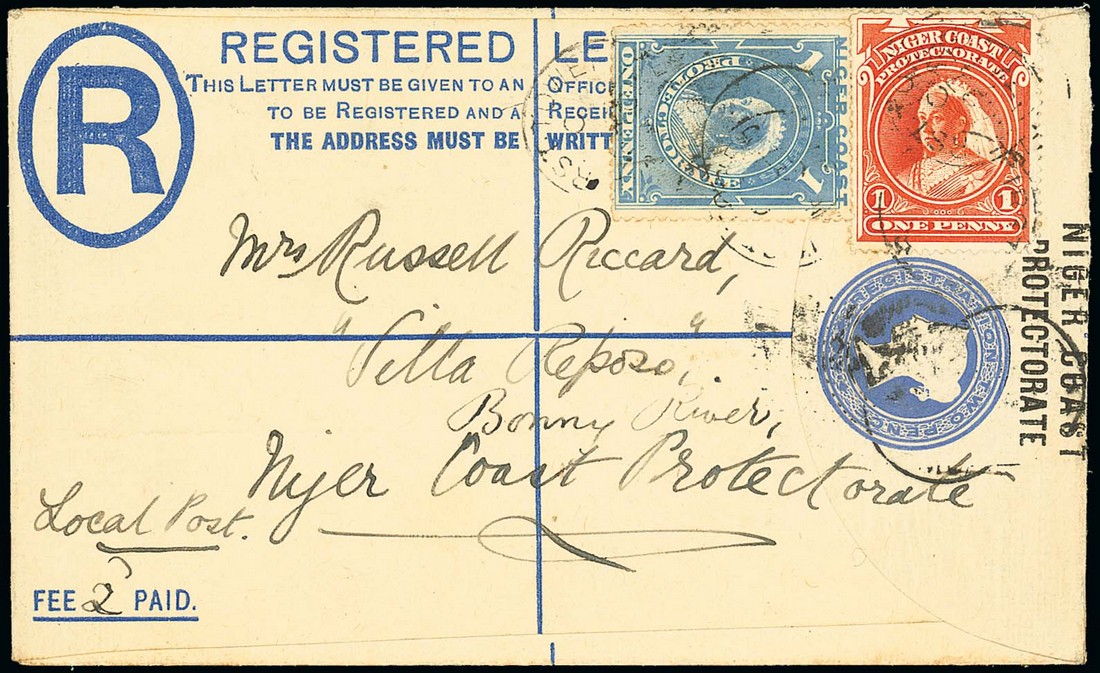 R
REGISTERED LE
THIS LETTER MUST BE GIVEN TO AN OFFIC
TO BE REGISTERED AND A RECEI
THE ADDRESS MUST BE WRITT
NIGER COAST
PROTECTORATE
1 1
ONE PENNY
NIGER COAST
PROTECTORATE
1 1
ONE PENNY
Mrs Russell Riccard,
"Villa Reposo,"
Bonny River,
Niger Coast Protectorate
Local Post.
FEE 2 PAID.
REGISTRATION TWO PENCE
NIGER COAST
PROTECTORATE